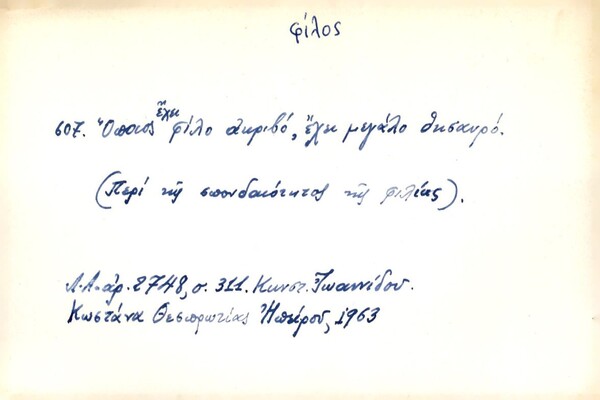 φίλος
607. Ὅποιος ἔχει φίλο ἀκριβό, ἔχει μεγάλο θησαυρό.
(Περί τῆς σπουδαιότητας τῆς φιλίας).
Λ.Α. ἀρ. 2748, σ. 311. Κωνστ. Ἰωαννίδου.
Κωστάνα Θεσπρωτίας Ἠπείρου, 1963